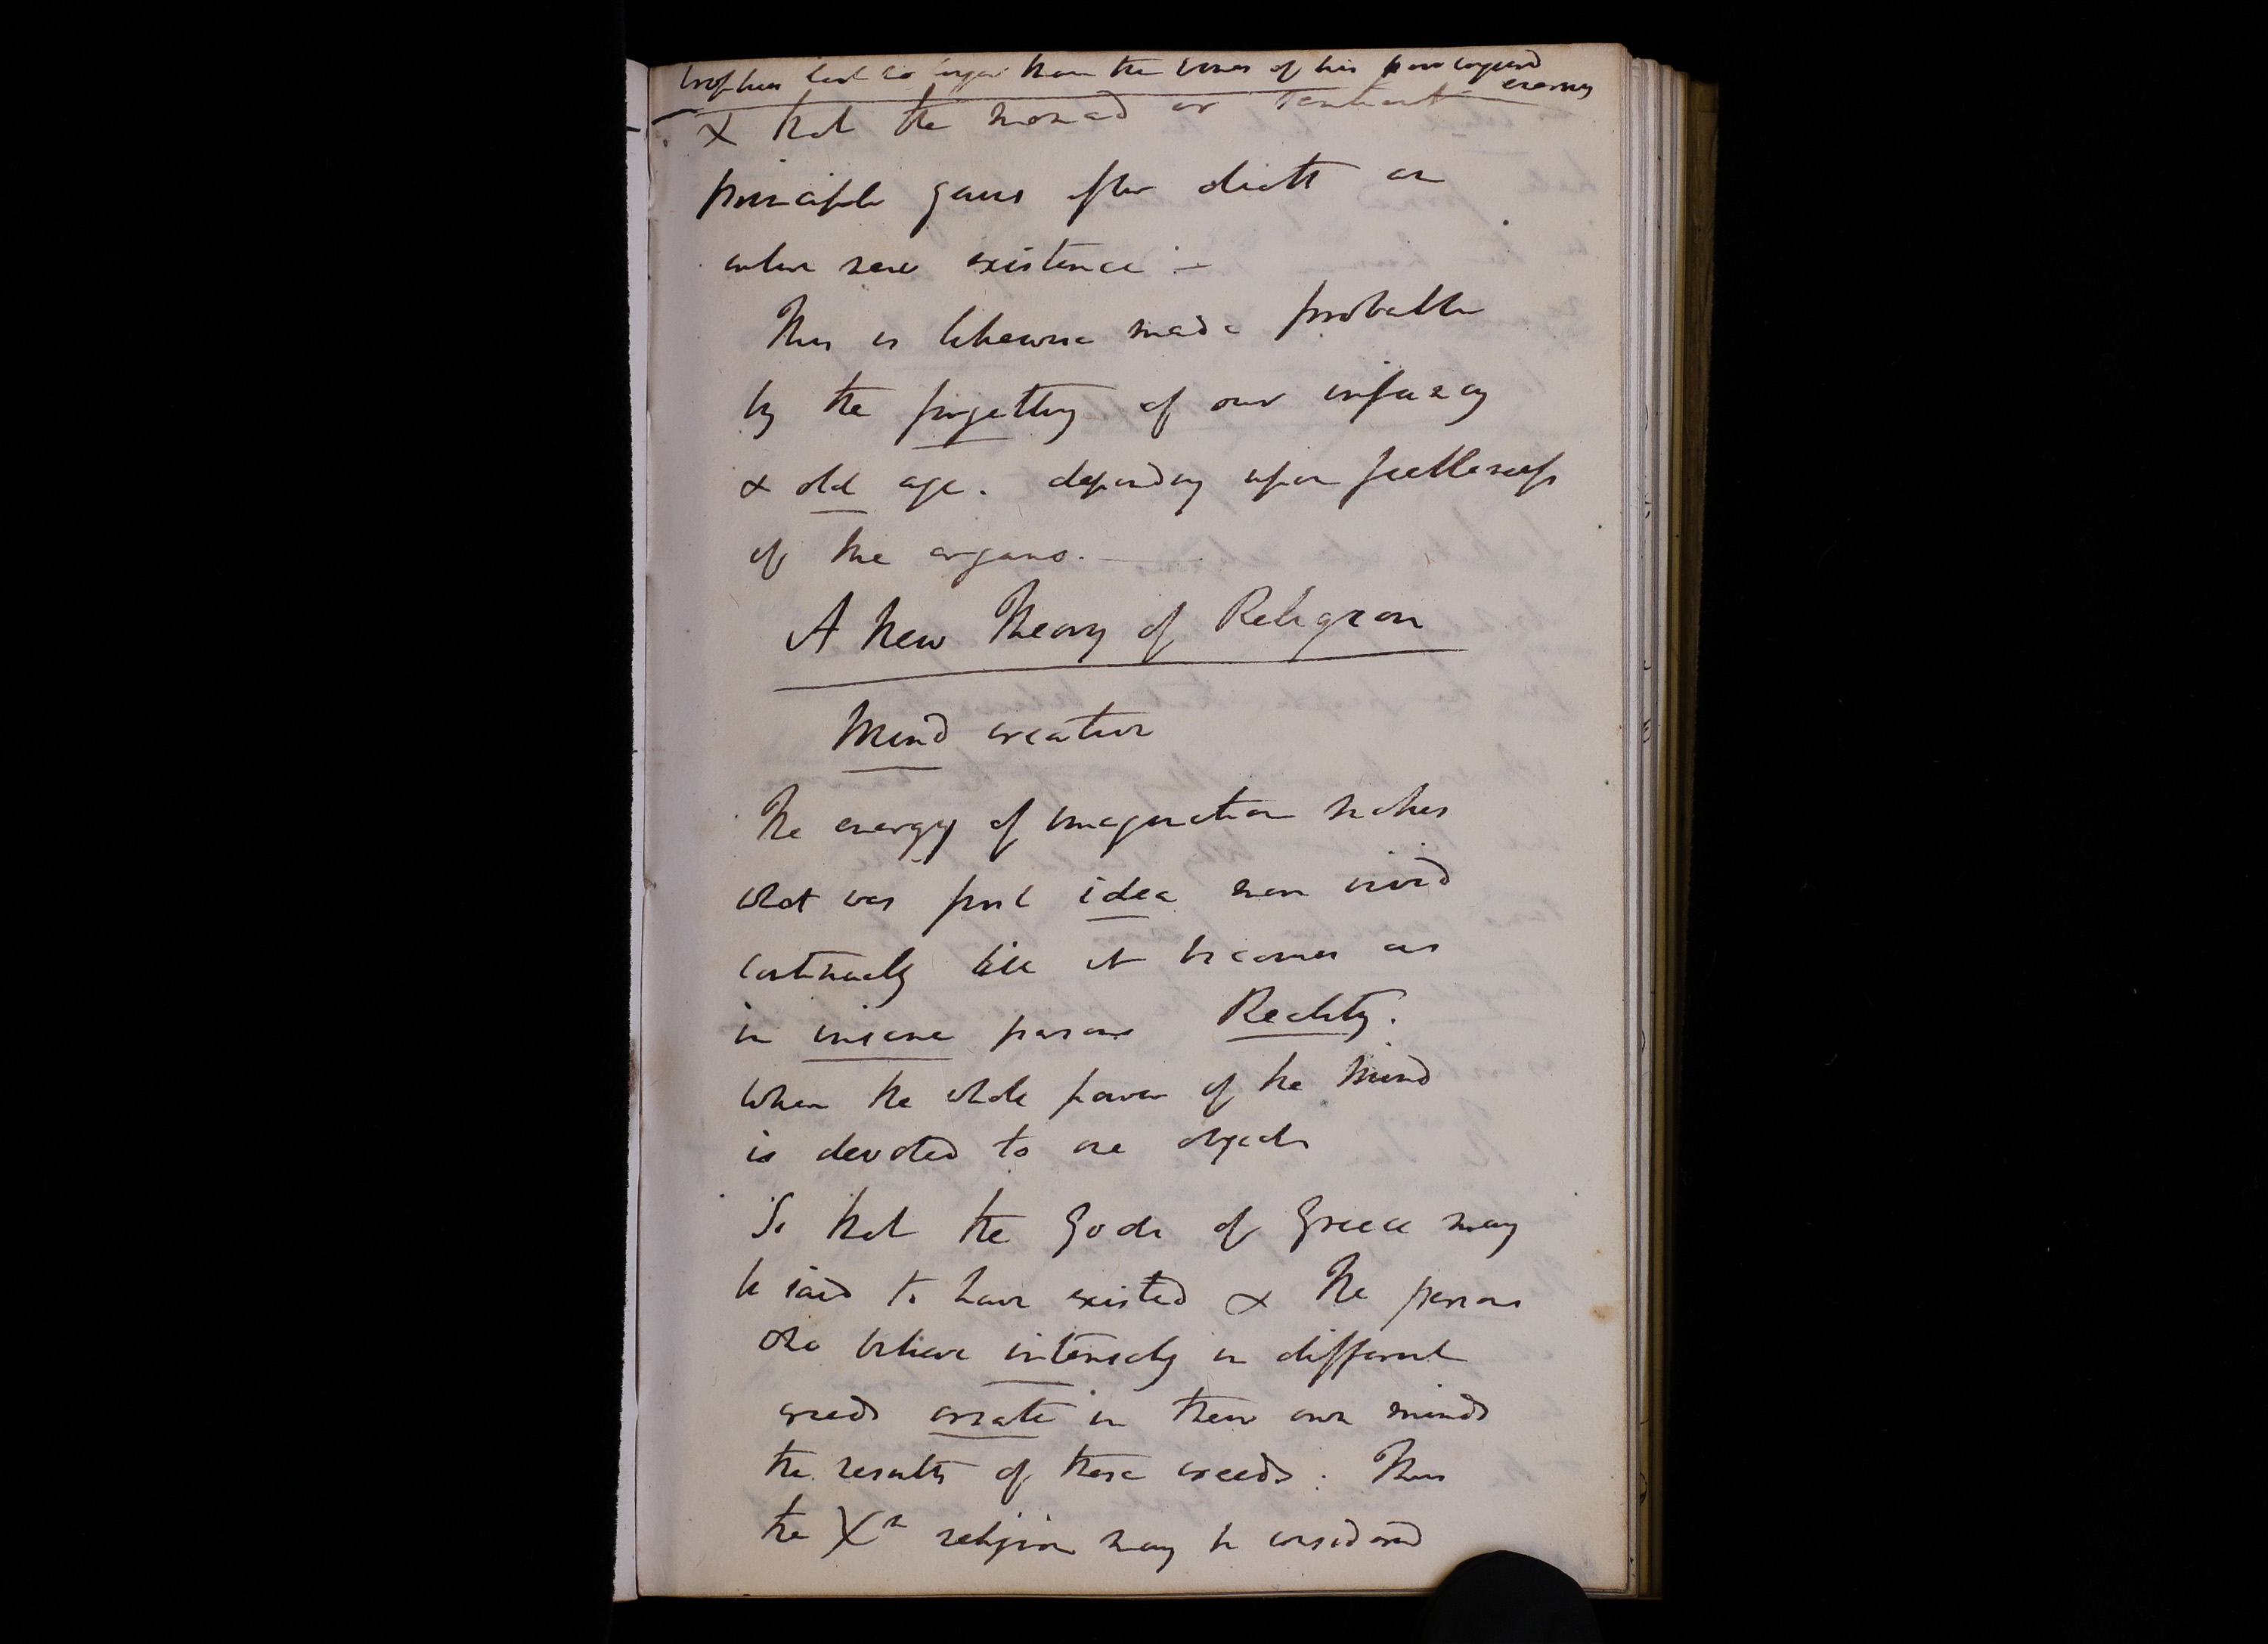 trophies last no longer than the bones of his poor conquered
enemy
& that the monad or sentient
principle gains after death an
entire new existence -
This is likewise made probable
by the forgetting of our infancy
& old age. depending upon feebleness
of the organs. -
A New Theory of Religion
Mind creative
The energy of imagination makes
what was first idea more vivid
continually till it becomes as
in insane persons Reality.
When the whole power of the Mind
is devoted to one object
So that the Gods of Greece may
be said to have existed & the persons
who believe intensely in different
creeds create in their own minds
the results of these creeds: Thus
the Xn religion may be considered